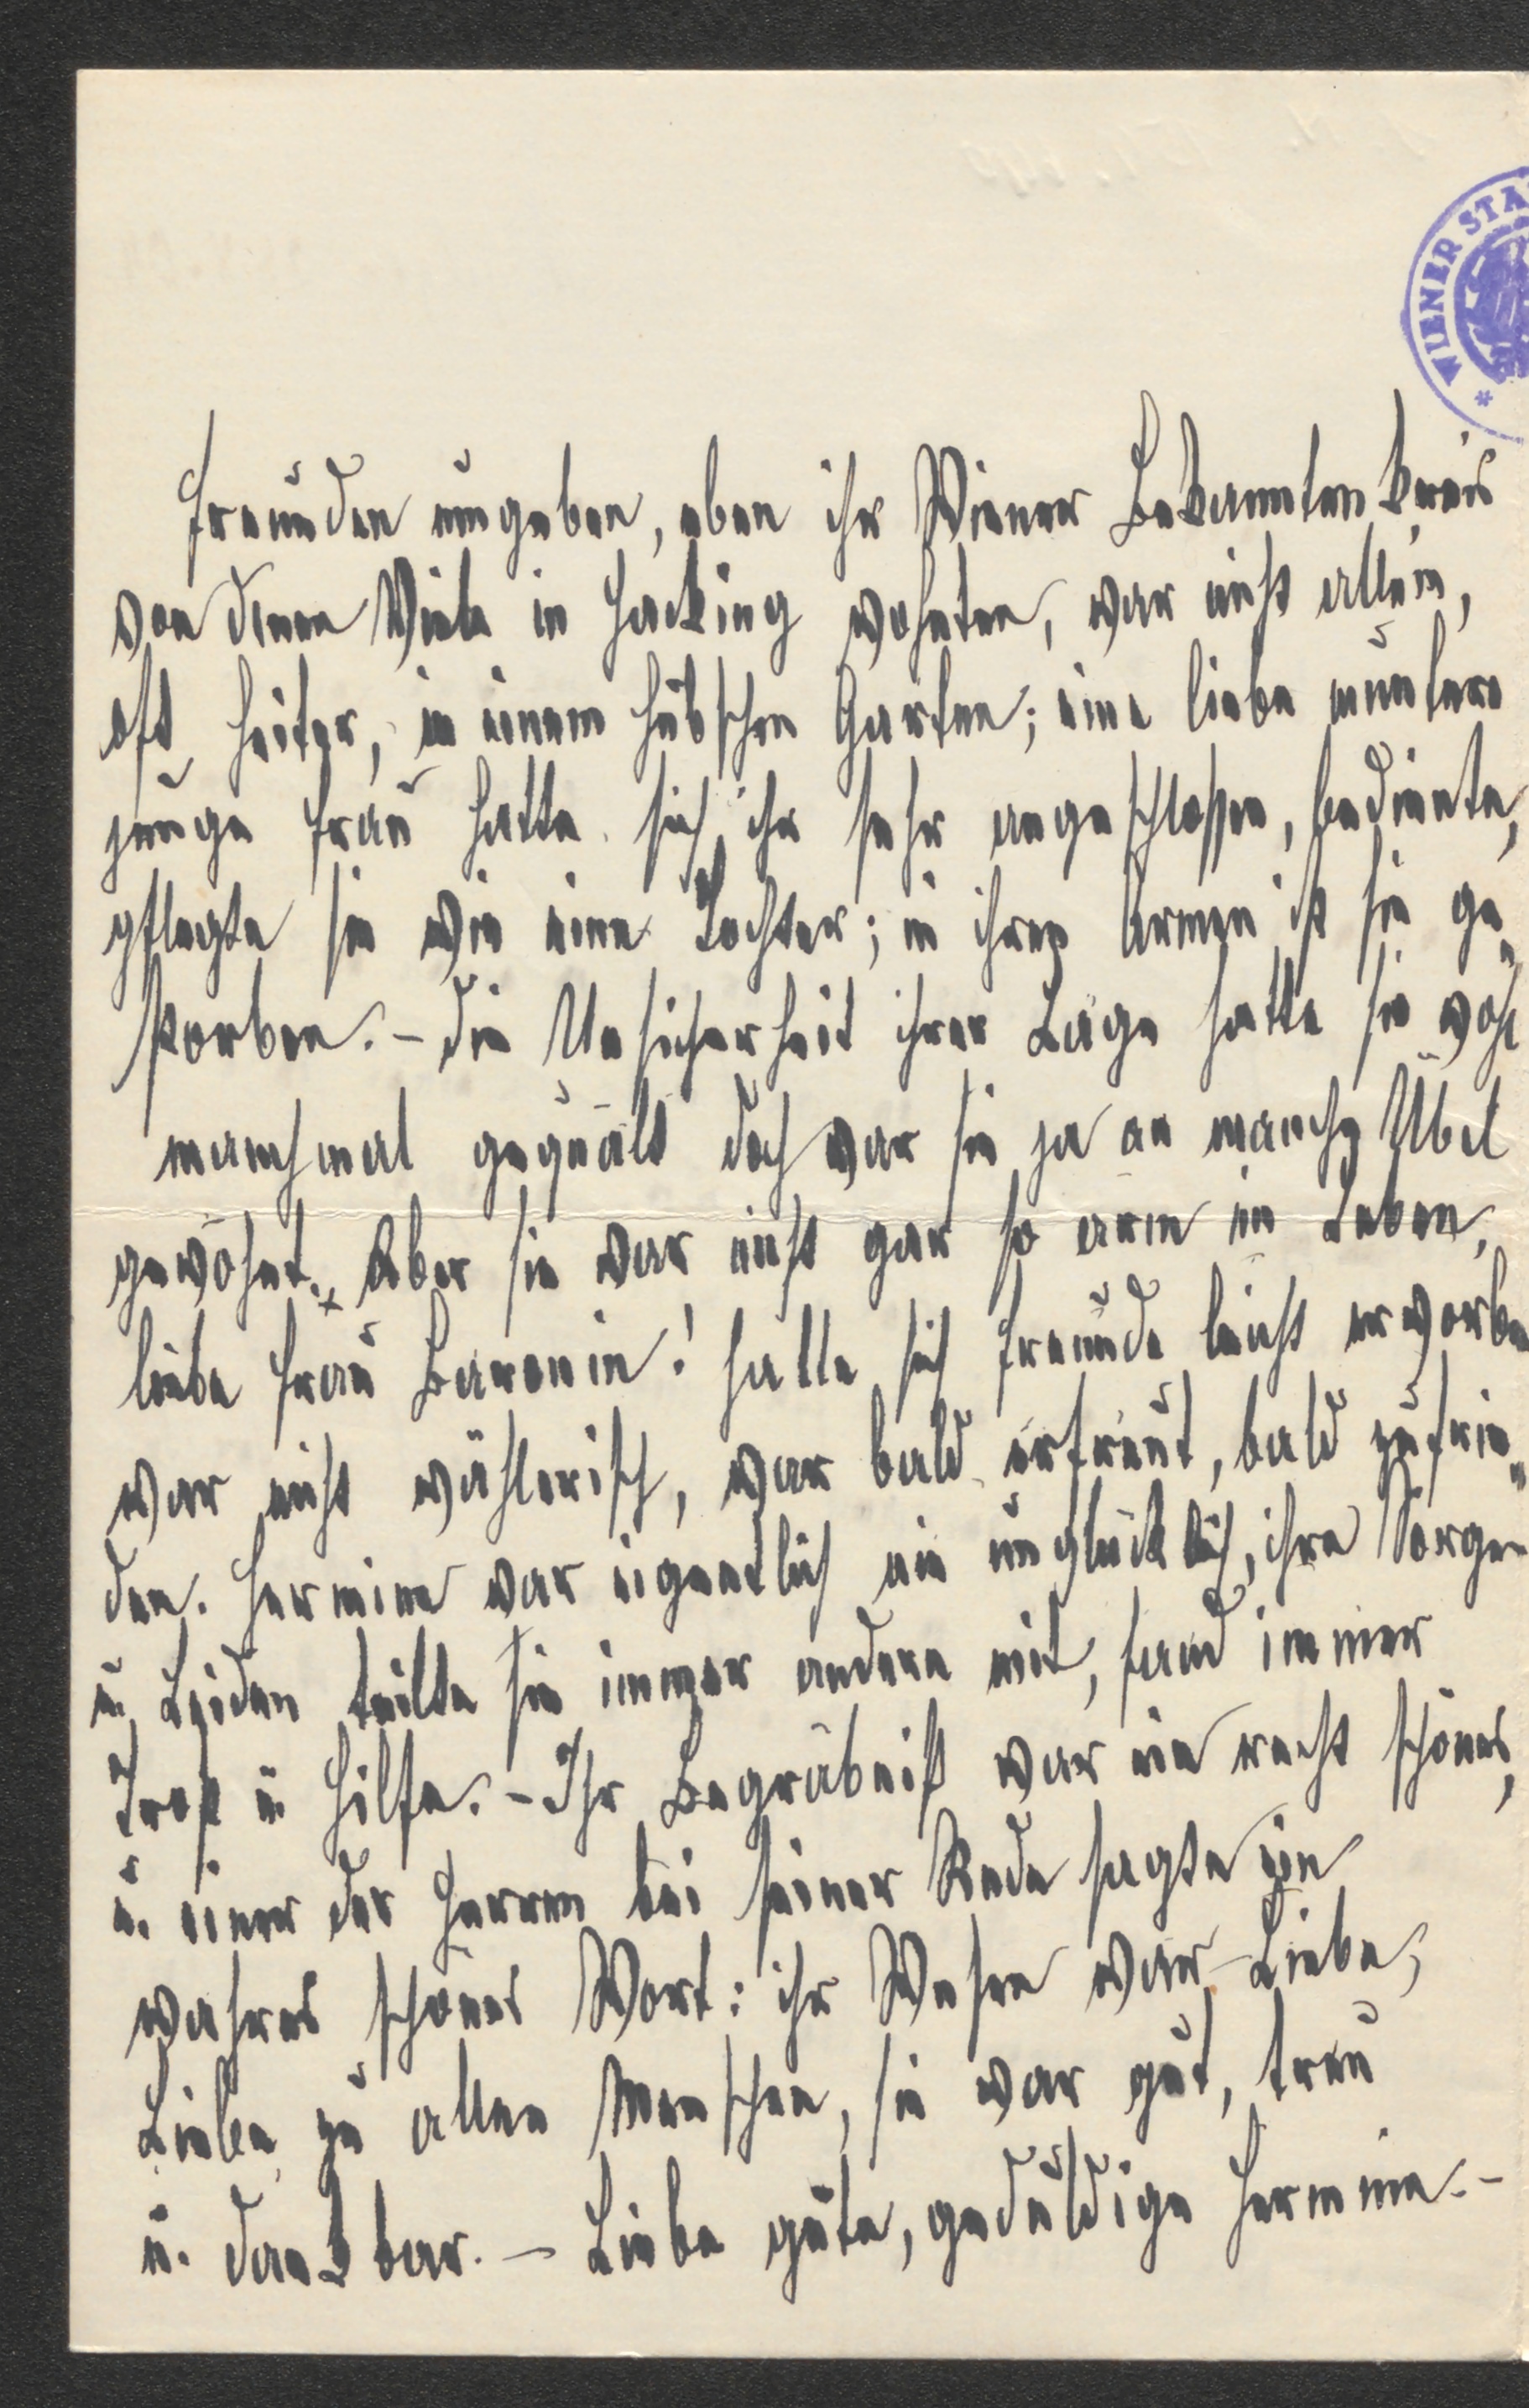 WIENER STA
Freunden umgeben, eben ihr Wiener Bekanntenkreis
von denen Viele in Hacking wohnten, war nicht allein,
oft heiter, in einem hübschen Garten; eine liebe muntere
junge Frau hatte sich ihr sehr angeschlossen, bediente,
pflegte sie wie eine Tochter; in ihren Armen ist sie ge„
storben. – Die Unsicherheit ihrer Lage hatte sie wohl
manchmal gequält doch war sie ja an manches Übel
gewöhnt. x Aber sie war nicht gar so arm im Leben,
liebe Frau Baronin! hatte sich Freunde leicht erworben
war nicht wählerisch, war bald erfreut, bald zufrie„
den. Hermine war eigentlich nie unglücklich, ihre Sorgen
u. Leiden teilte sie immer andern mit, fand immer
Trost u. Hilfe. – Ihr Begräbniß war ein recht schönes,
u. einer der Herren bei seiner Rede sagte ein
wahres schönes Wort: ihr Wesen war Liebe,
Liebe zu allen Menschen, sie war gut, treu
u. dankbar. – Liebe gute, geduldige Hermine. –